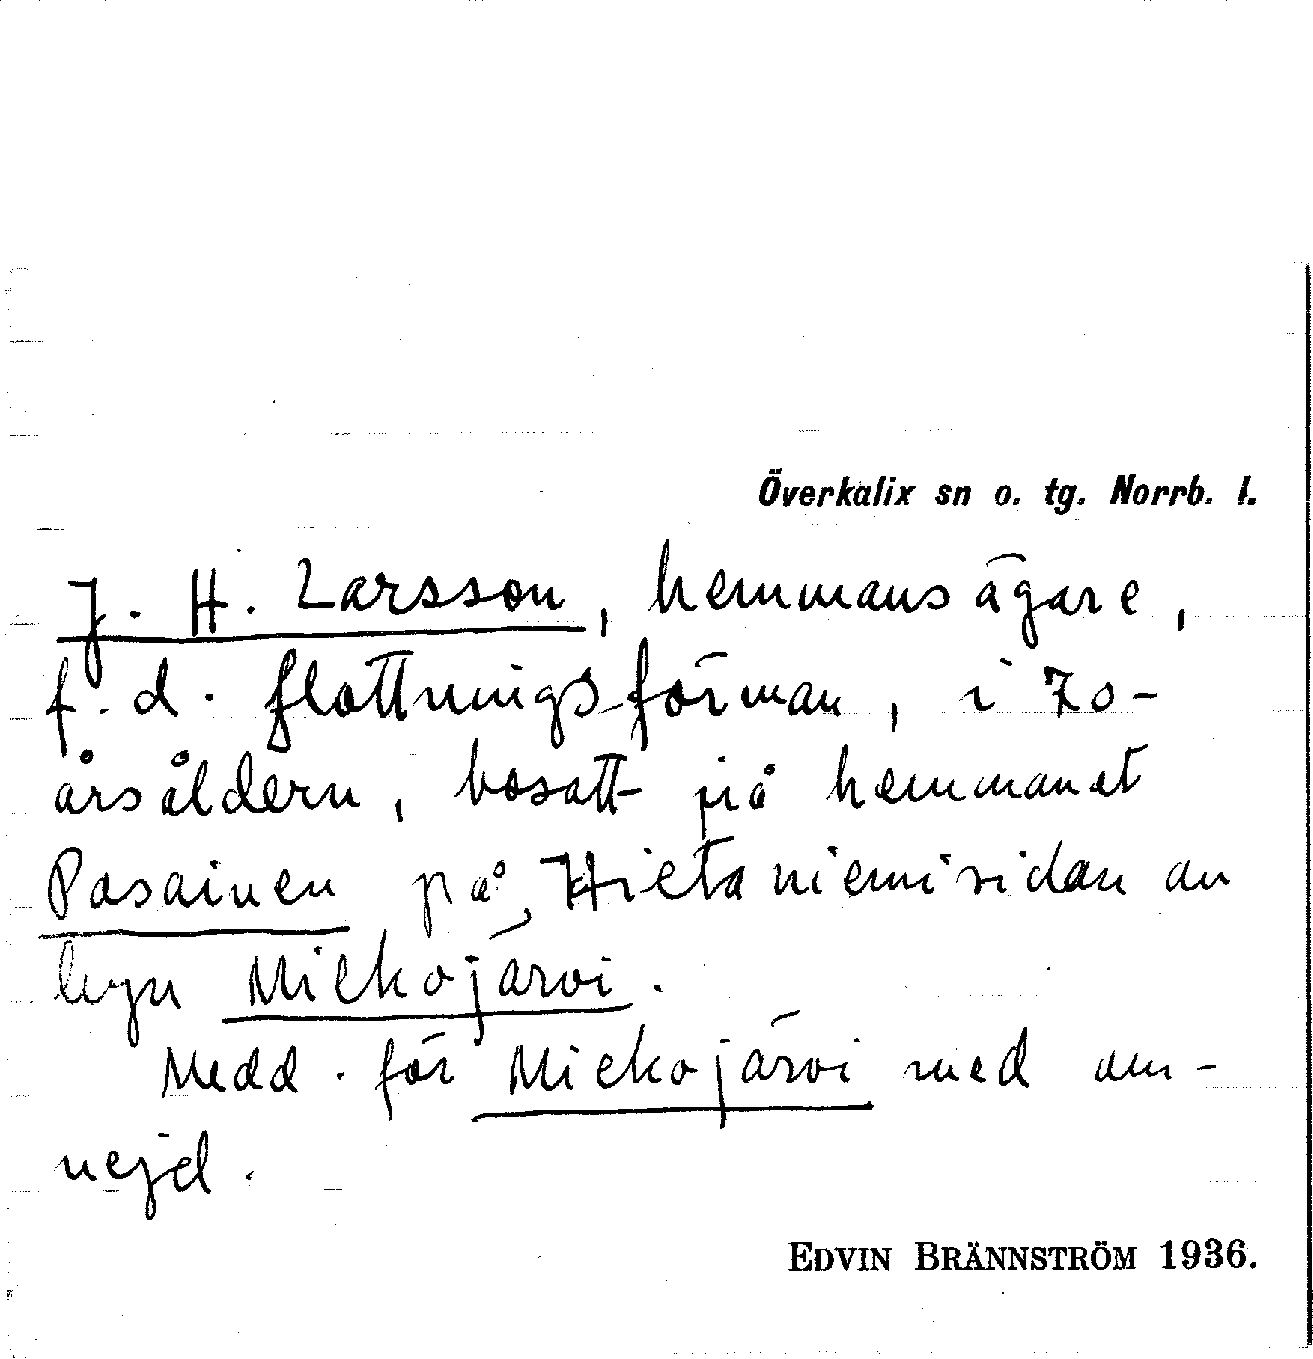 Överkalix sn o. tg. Norrb. l.
J. H. Larsson, hemmansägare,
f. d. flottningsförman, i 70-
årsåldern, bosatt på hemmanet
Pasainen på Hietaniemisidan av
byn Mickojärvi.
Medd. för Mickojärvi med om-
nejd.
EDVIN BRÄNNSTRÖM 1936.